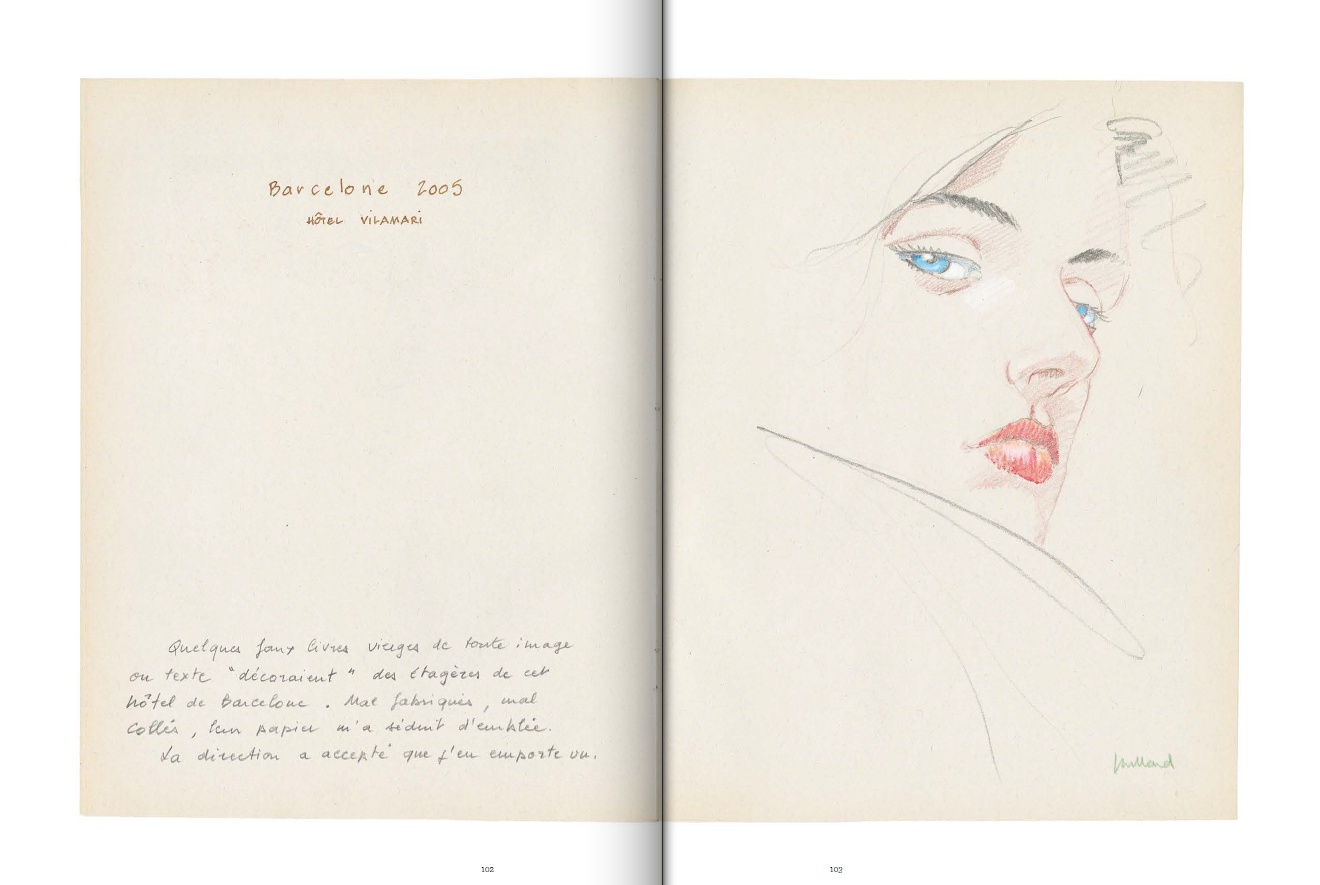 Barcelone 2005
HÔTEL VILAMARI
Quelques faux livres vierges de toute image
ou texte "décoraient" des étagères de cet
hôtel de Barcelone. Mal fabriqués, mal
collés, leur papier m'a séduit d'emblée.
La direction a accepté que j'en emporte un.
102
103